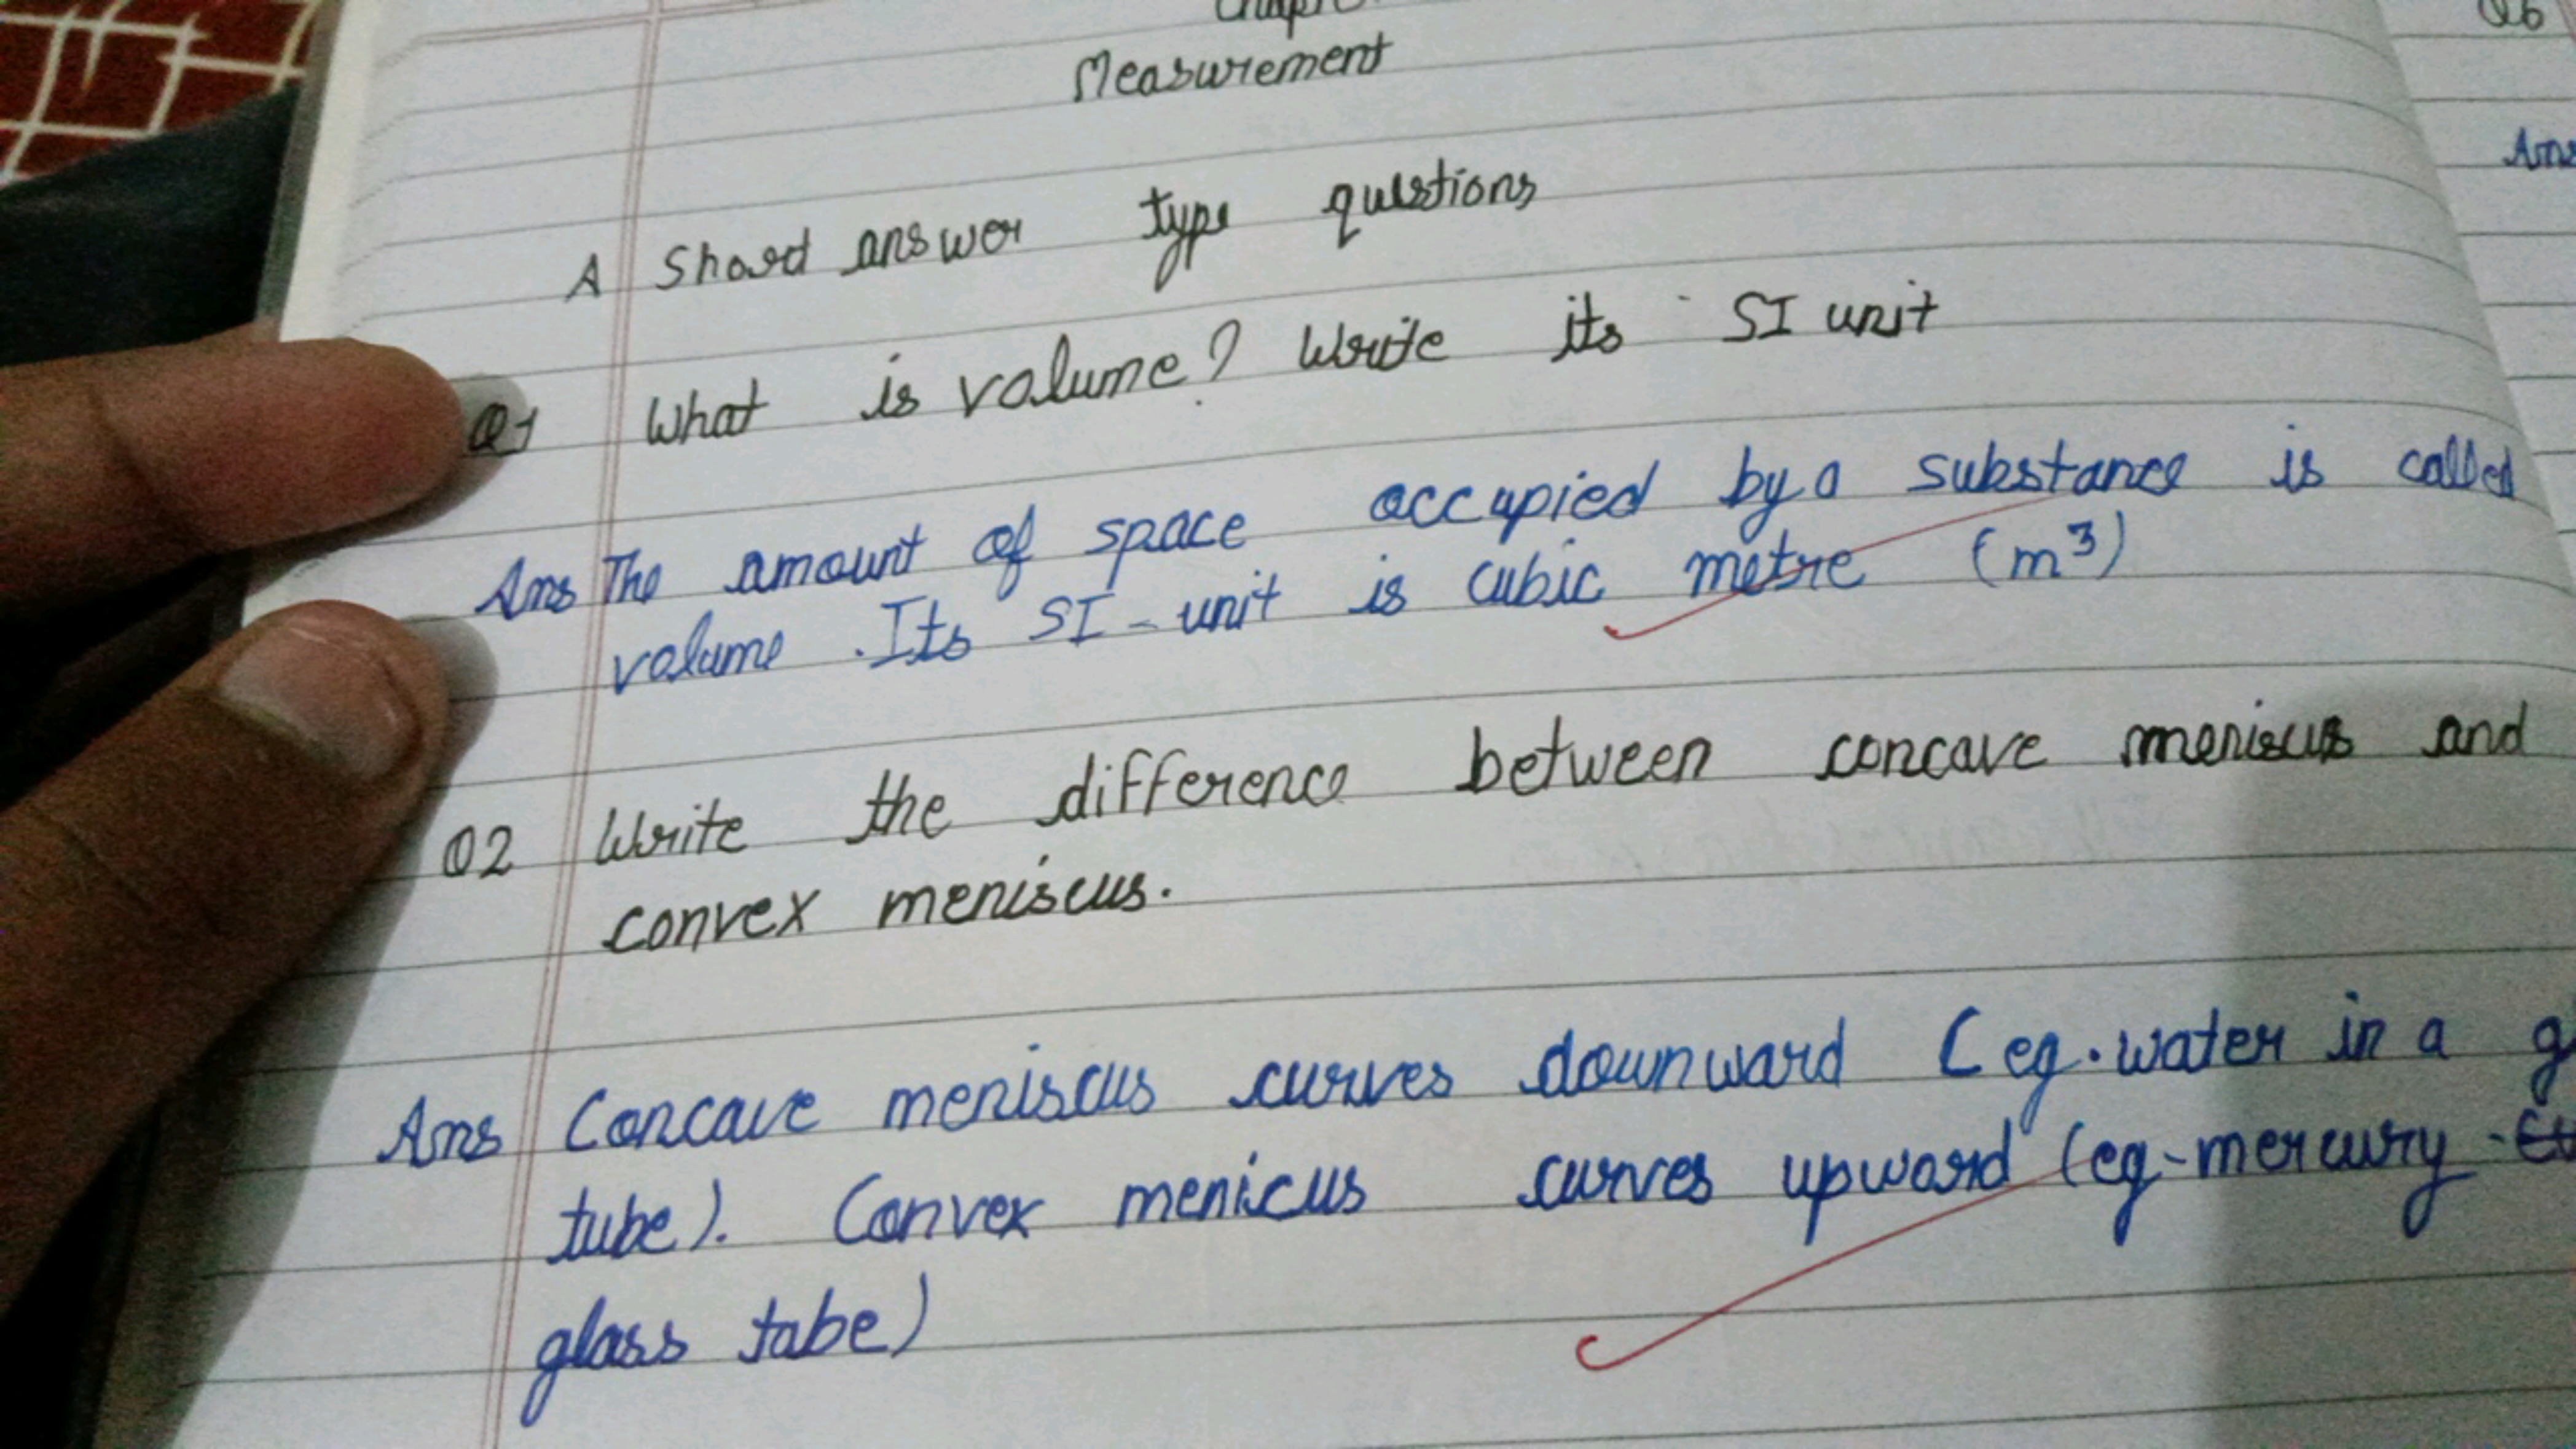 Measurement
A Shord answer type questions
Q1 What is volume? Write its SI unit
Ans The amount of space occupied by a substance is called
volume. Its SI-unit is cubic metre (m³)
Q2 Write the difference between concave meniscus and
convex meniscus.
Ans Concave meniscus curves downward (eg. water in a g
tube). Convex menicus curves upward (eg-mercury
glass tabe)
Q6
Ans